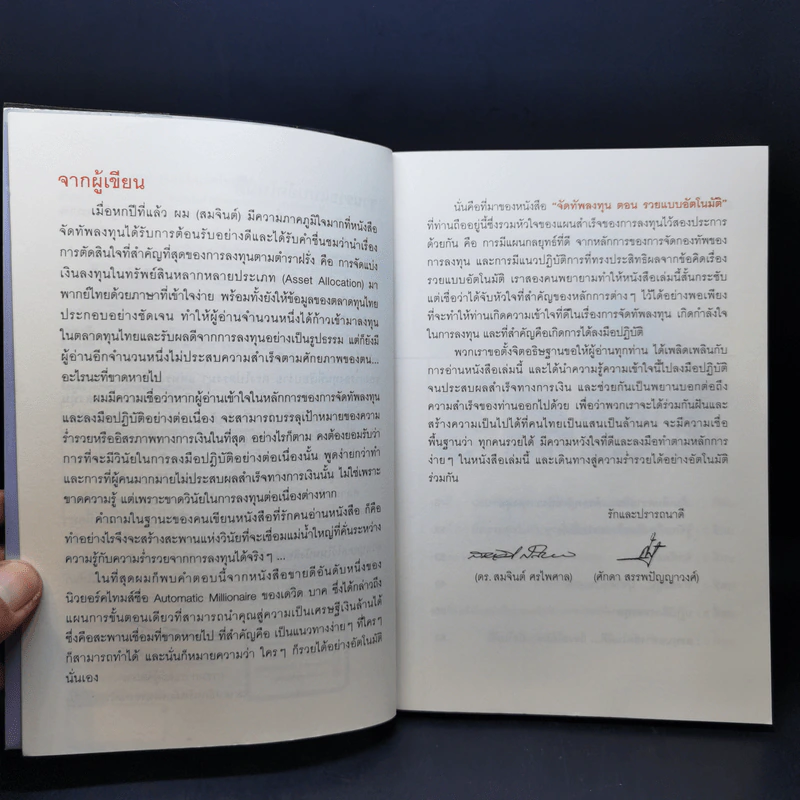 จากผู้เขียน
เมื่อหกปีที่แล้ว ผม (สมจินต์) มีความภาคภูมิใจมากที่หนังสือ
จัดทัพลงทุนได้รับการต้อนรับอย่างดีและได้รับคำชื่นชมว่านำเรื่อง
การตัดสินใจที่สำคัญที่สุดของการลงทุนตามตำราฝรั่ง คือ การจัดแบ่ง
เงินลงทุนในทรัพย์สินหลากหลายประเภท (Asset Allocation) มา
พากย์ไทยด้วยภาษาที่เข้าใจง่าย พร้อมทั้งยังให้ข้อมูลของตลาดทุนไทย
ประกอบอย่างชัดเจน ทำให้ผู้อ่านจำนวนหนึ่งได้ก้าวเข้ามาลงทุน
ในตลาดทุนไทยและรับผลดีจากการลงทุนอย่างเป็นรูปธรรม แต่ก็ยังมี
ผู้อ่านอีกจำนวนหนึ่งไม่ประสบความสำเร็จตามศักยภาพของตน...
อะไรนะที่ขาดหายไป
ผมมีความเชื่อว่าหากผู้อ่านเข้าใจในหลักการของการจัดทัพลงทุน
และลงมือปฏิบัติอย่างต่อเนื่อง จะสามารถบรรลุเป้าหมายของความ
ร่ำรวยหรืออิสรภาพทางการเงินในที่สุด อย่างไรก็ตาม คงต้องยอมรับว่า
การที่จะมีวินัยในการลงมือปฏิบัติอย่างต่อเนื่องนั้น พูดง่ายกว่าทำ
และการที่ผู้คนมากมายไม่ประสบผลสำเร็จทางการเงินนั้น ไม่ใช่เพราะ
ขาดความรู้ แต่เพราะขาดวินัยในการลงทุนต่อเนื่องต่างหาก
คำถามในฐานะของคนเขียนหนังสือที่รักคนอ่านหนังสือ ก็คือ
ทำอย่างไรจึงจะสร้างสะพานแห่งวินัยที่จะเชื่อมแม่น้ำใหญ่ที่คั่นระหว่าง
ความรู้กับความร่ำรวยจากการลงทุนได้จริงๆ ...
ในที่สุดผมก็พบคำตอบนี้จากหนังสือขายดีอันดับหนึ่งของ
นิวยอร์คไทมส์ชื่อ Automatic Millionaire ของเดวิด บาค ซึ่งได้กล่าวถึง
แผนการขั้นตอนเดียวที่สามารถนำคุณสู่ความเป็นเศรษฐีเงินล้านได้
ซึ่งคือสะพานเชื่อมที่ขาดหายไป ที่สำคัญคือ เป็นแนวทางง่ายๆ ที่ใครๆ
ก็สามารถทำได้ และนั่นก็หมายความว่า ใครๆ ก็รวยได้อย่างอัตโนมัติ
นั่นเอง
นั่นคือที่มาของหนังสือ "จัดทัพลงทุน ตอน รวยแบบอัตโนมัติ"
ที่ท่านถืออยู่นี้ซึ่งรวมหัวใจของแผนสำเร็จของการลงทุนไว้สองประการ
ด้วยกัน คือ การมีแผนกลยุทธ์ที่ดี จากหลักการของการจัดกองทัพของ
การลงทุน และการมีแนวปฏิบัติการที่ทรงประสิทธิผลจากข้อคิดเรื่อง
รวยแบบอัตโนมัติ เราสองคนพยายามทำให้หนังสือเล่มนี้สั้นกระชับ
แต่เชื่อว่าได้จับหัวใจที่สำคัญของหลักการต่างๆ ไว้ได้อย่างพอเพียง
ที่จะทำให้ท่านเกิดความเข้าใจที่ดีในเรื่องการจัดทัพลงทุน เกิดกำลังใจ
ในการลงทุน และที่สำคัญคือเกิดการได้ลงมือปฏิบัติ
พวกเราขอตั้งจิตอธิษฐานขอให้ผู้อ่านทุกท่าน ได้เพลิดเพลินกับ
การอ่านหนังสือเล่มนี้ และได้นำความรู้ความเข้าใจนี้ไปลงมือปฏิบัติ
จนประสบผลสำเร็จทางการเงิน และช่วยกันเป็นพยานบอกต่อถึง
ความสำเร็จของท่านออกไปด้วย เพื่อว่าพวกเราจะได้ร่วมกันฝันและ
สร้างความเป็นไปได้ที่คนไทยเป็นแสนเป็นล้านคน จะมีความเชื่อ
พื้นฐานว่า ทุกคนรวยได้ มีความหวังใจที่ดีและลงมือทำตามหลักการ
ง่ายๆ ในหนังสือเล่มนี้ และเดินทางสู่ความร่ำรวยได้อย่างอัตโนมัติ
ร่วมกัน
รักและปรารถนาดี
(ดร. สมจินต์ ศรไพศาล) (ศักดา สรรพปัญญาวงศ์)